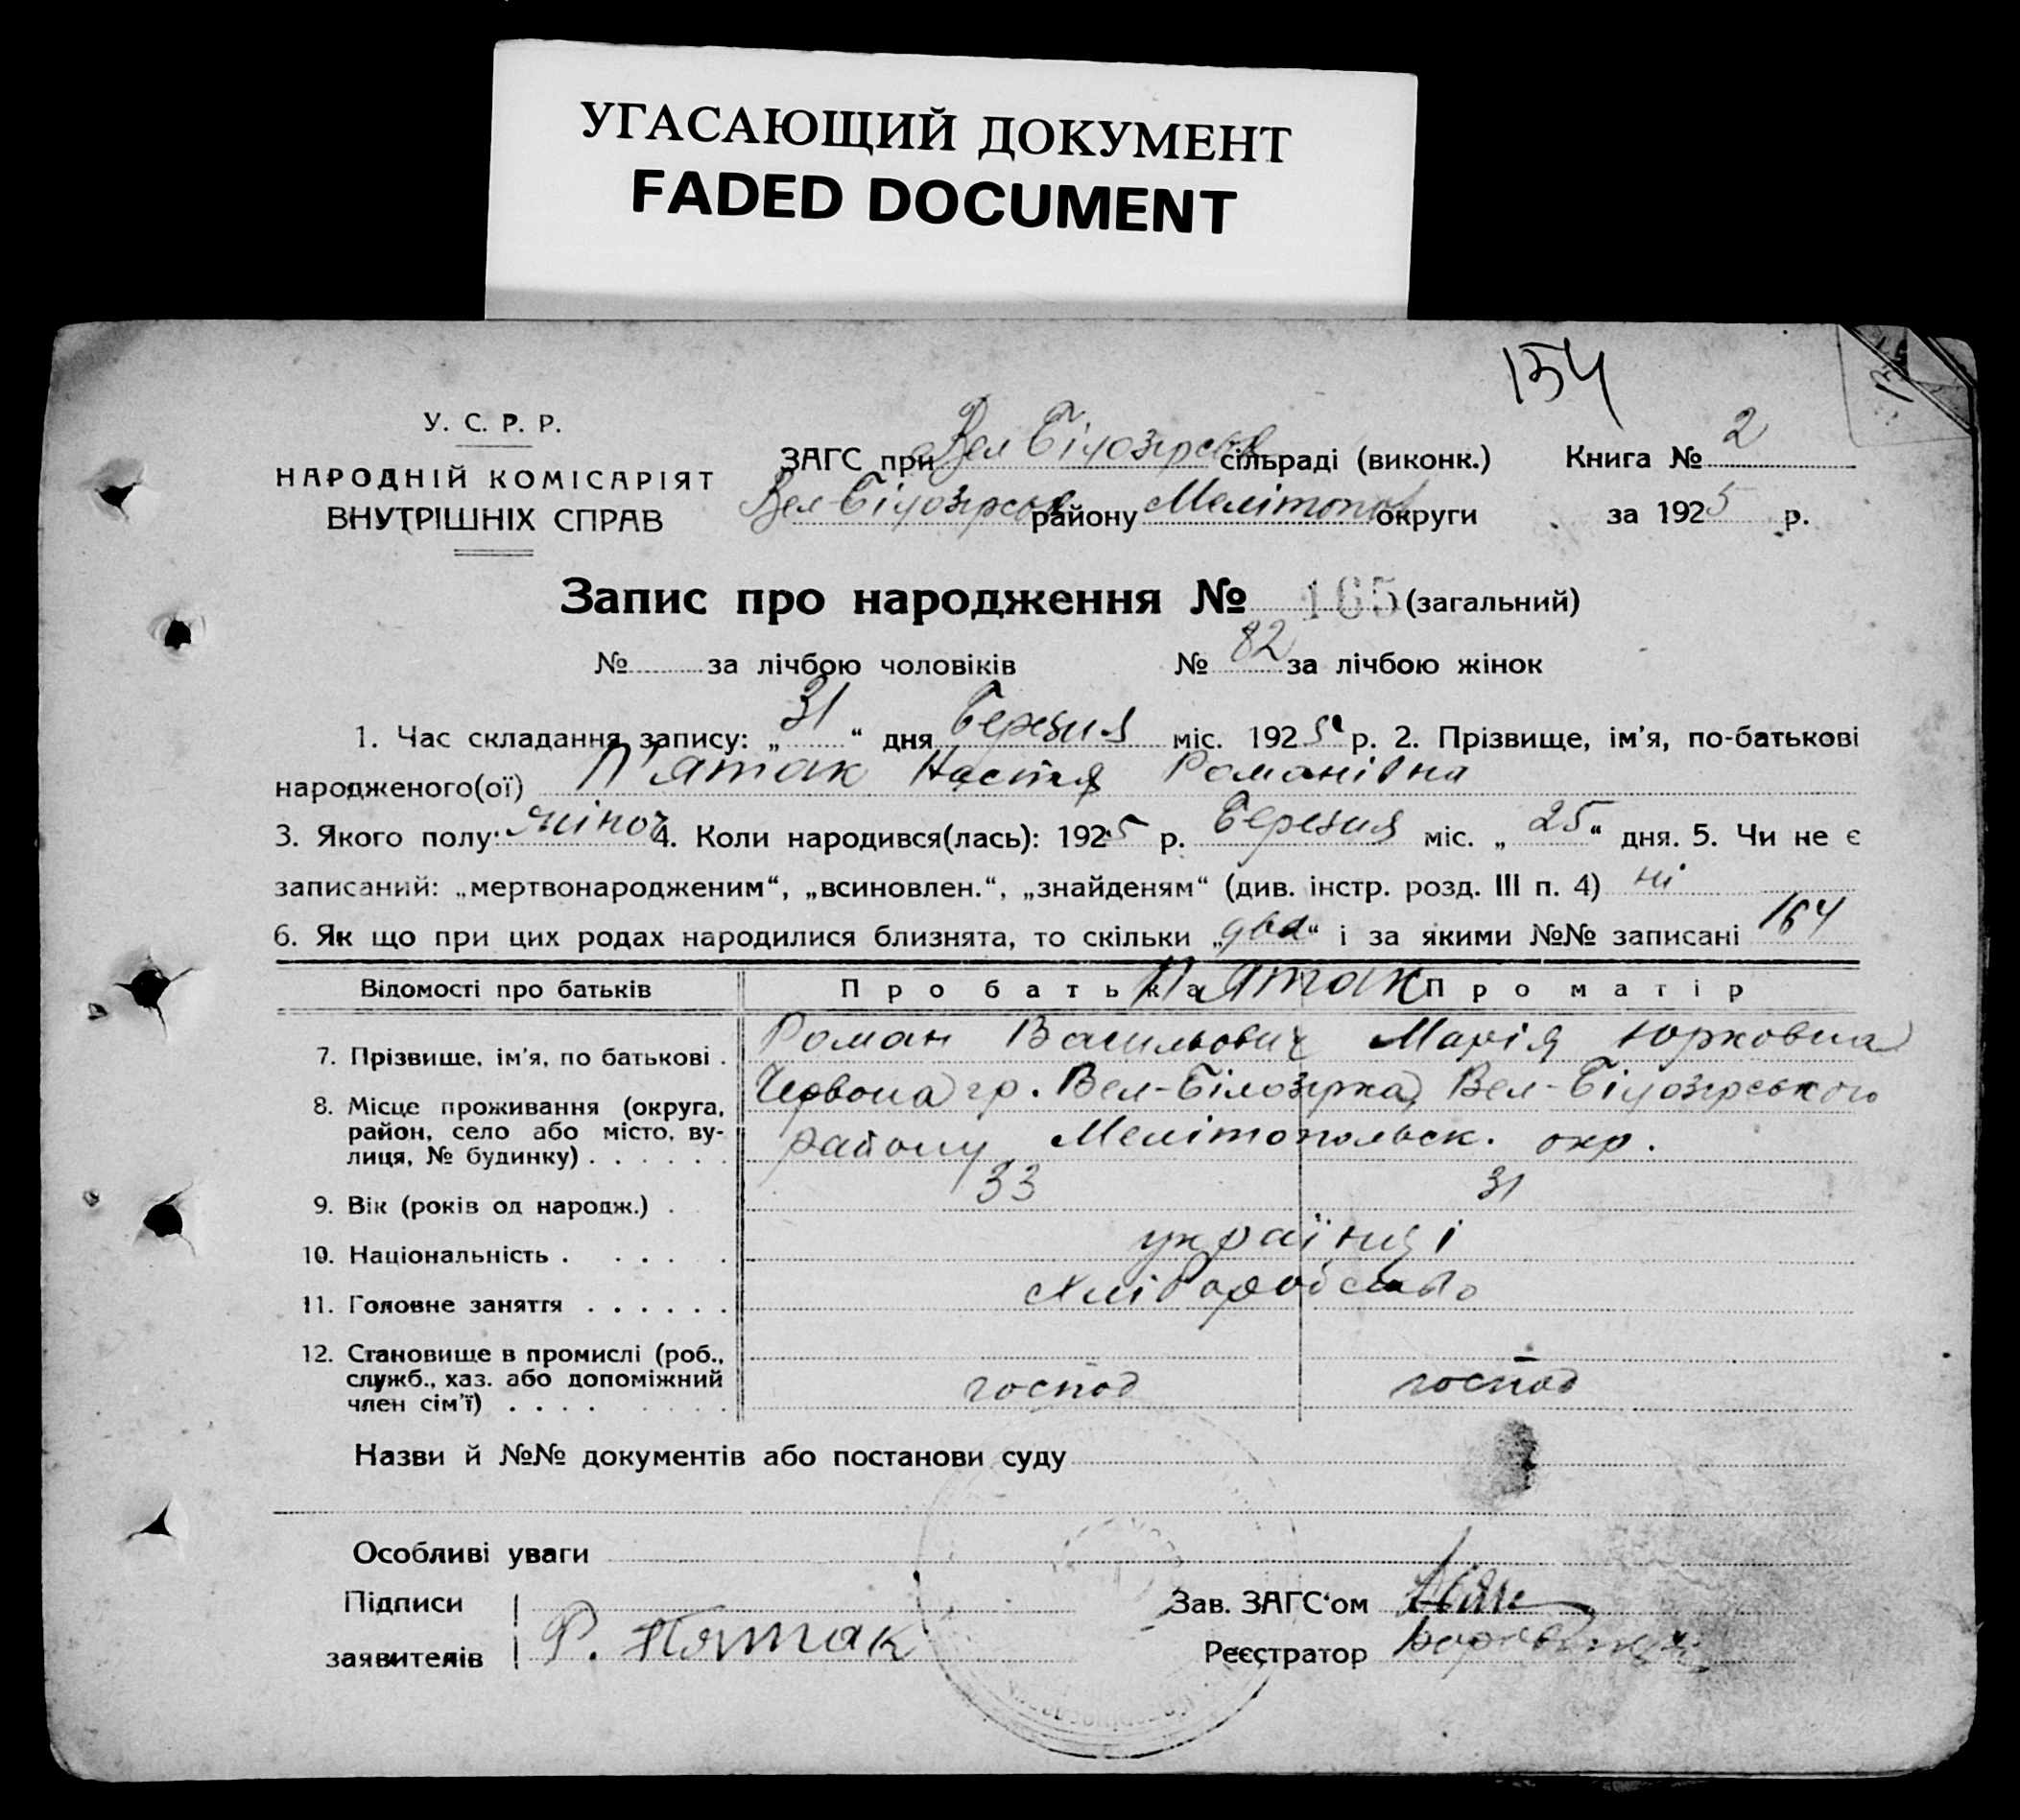 УГАСАЮЩИЙ ДОКУМЕНТ
FADED DOCUMENT
154
У. С. Р. Р.
НАРОДНІЙ КОМІСАРІЯТ
ВНУТРІШНІХ СПРАВ
ЗАГС при Вел Білозірськ сільраді (виконк.) Книга № 2
Вел Білозірськ району Мелітопол округи за 1925 р.
Запис про народження № 165 (загальний)
№ за лічбою чоловіків № 82 за лічбою жінок
1. Час складання запису: „31“ дня Березня міс. 1925 р. 2. Прізвище, ім'я, по-батькові
народженого(ої) П'ятак Настя Романівна
3. Якого полу жіноч 4. Коли народився(лась): 1925 р. Березня міс. „25“ дня. 5. Чи не є
записаний: „мертвонародженим“, „всиновлен.“, „знайденям“ (див. інстр. розд. III п. 4) ні
6. Як що при цих родах народилися близнята, то скільки „два“ і за якими №№ записані 164
Відомості про батьків Про батька П'ятак Про матір
7. Прізвище, ім'я, по батькові . Роман Васильович Марія Юрковна
8. Місце проживання (округа, район, село або місто, вулиця, № будинку) . . . . . . Червона гр. Вел-Білозірка, Вел-Білозірського
району Мелітопольськ. окр.
9. Вік (років од народж.) . 33 31
10. Національність . . . . . українці
11. Головне заняття . . . . . . хліборобство
12. Становище в промислі (роб., служб., хаз. або допоміжний член сім'ї) . . . . господ господ
Назви й №№ документів або постанови суду
Особливі уваги
Підписи Зав. ЗАГС'ом
заявителів Р. Пятак Реєстратор